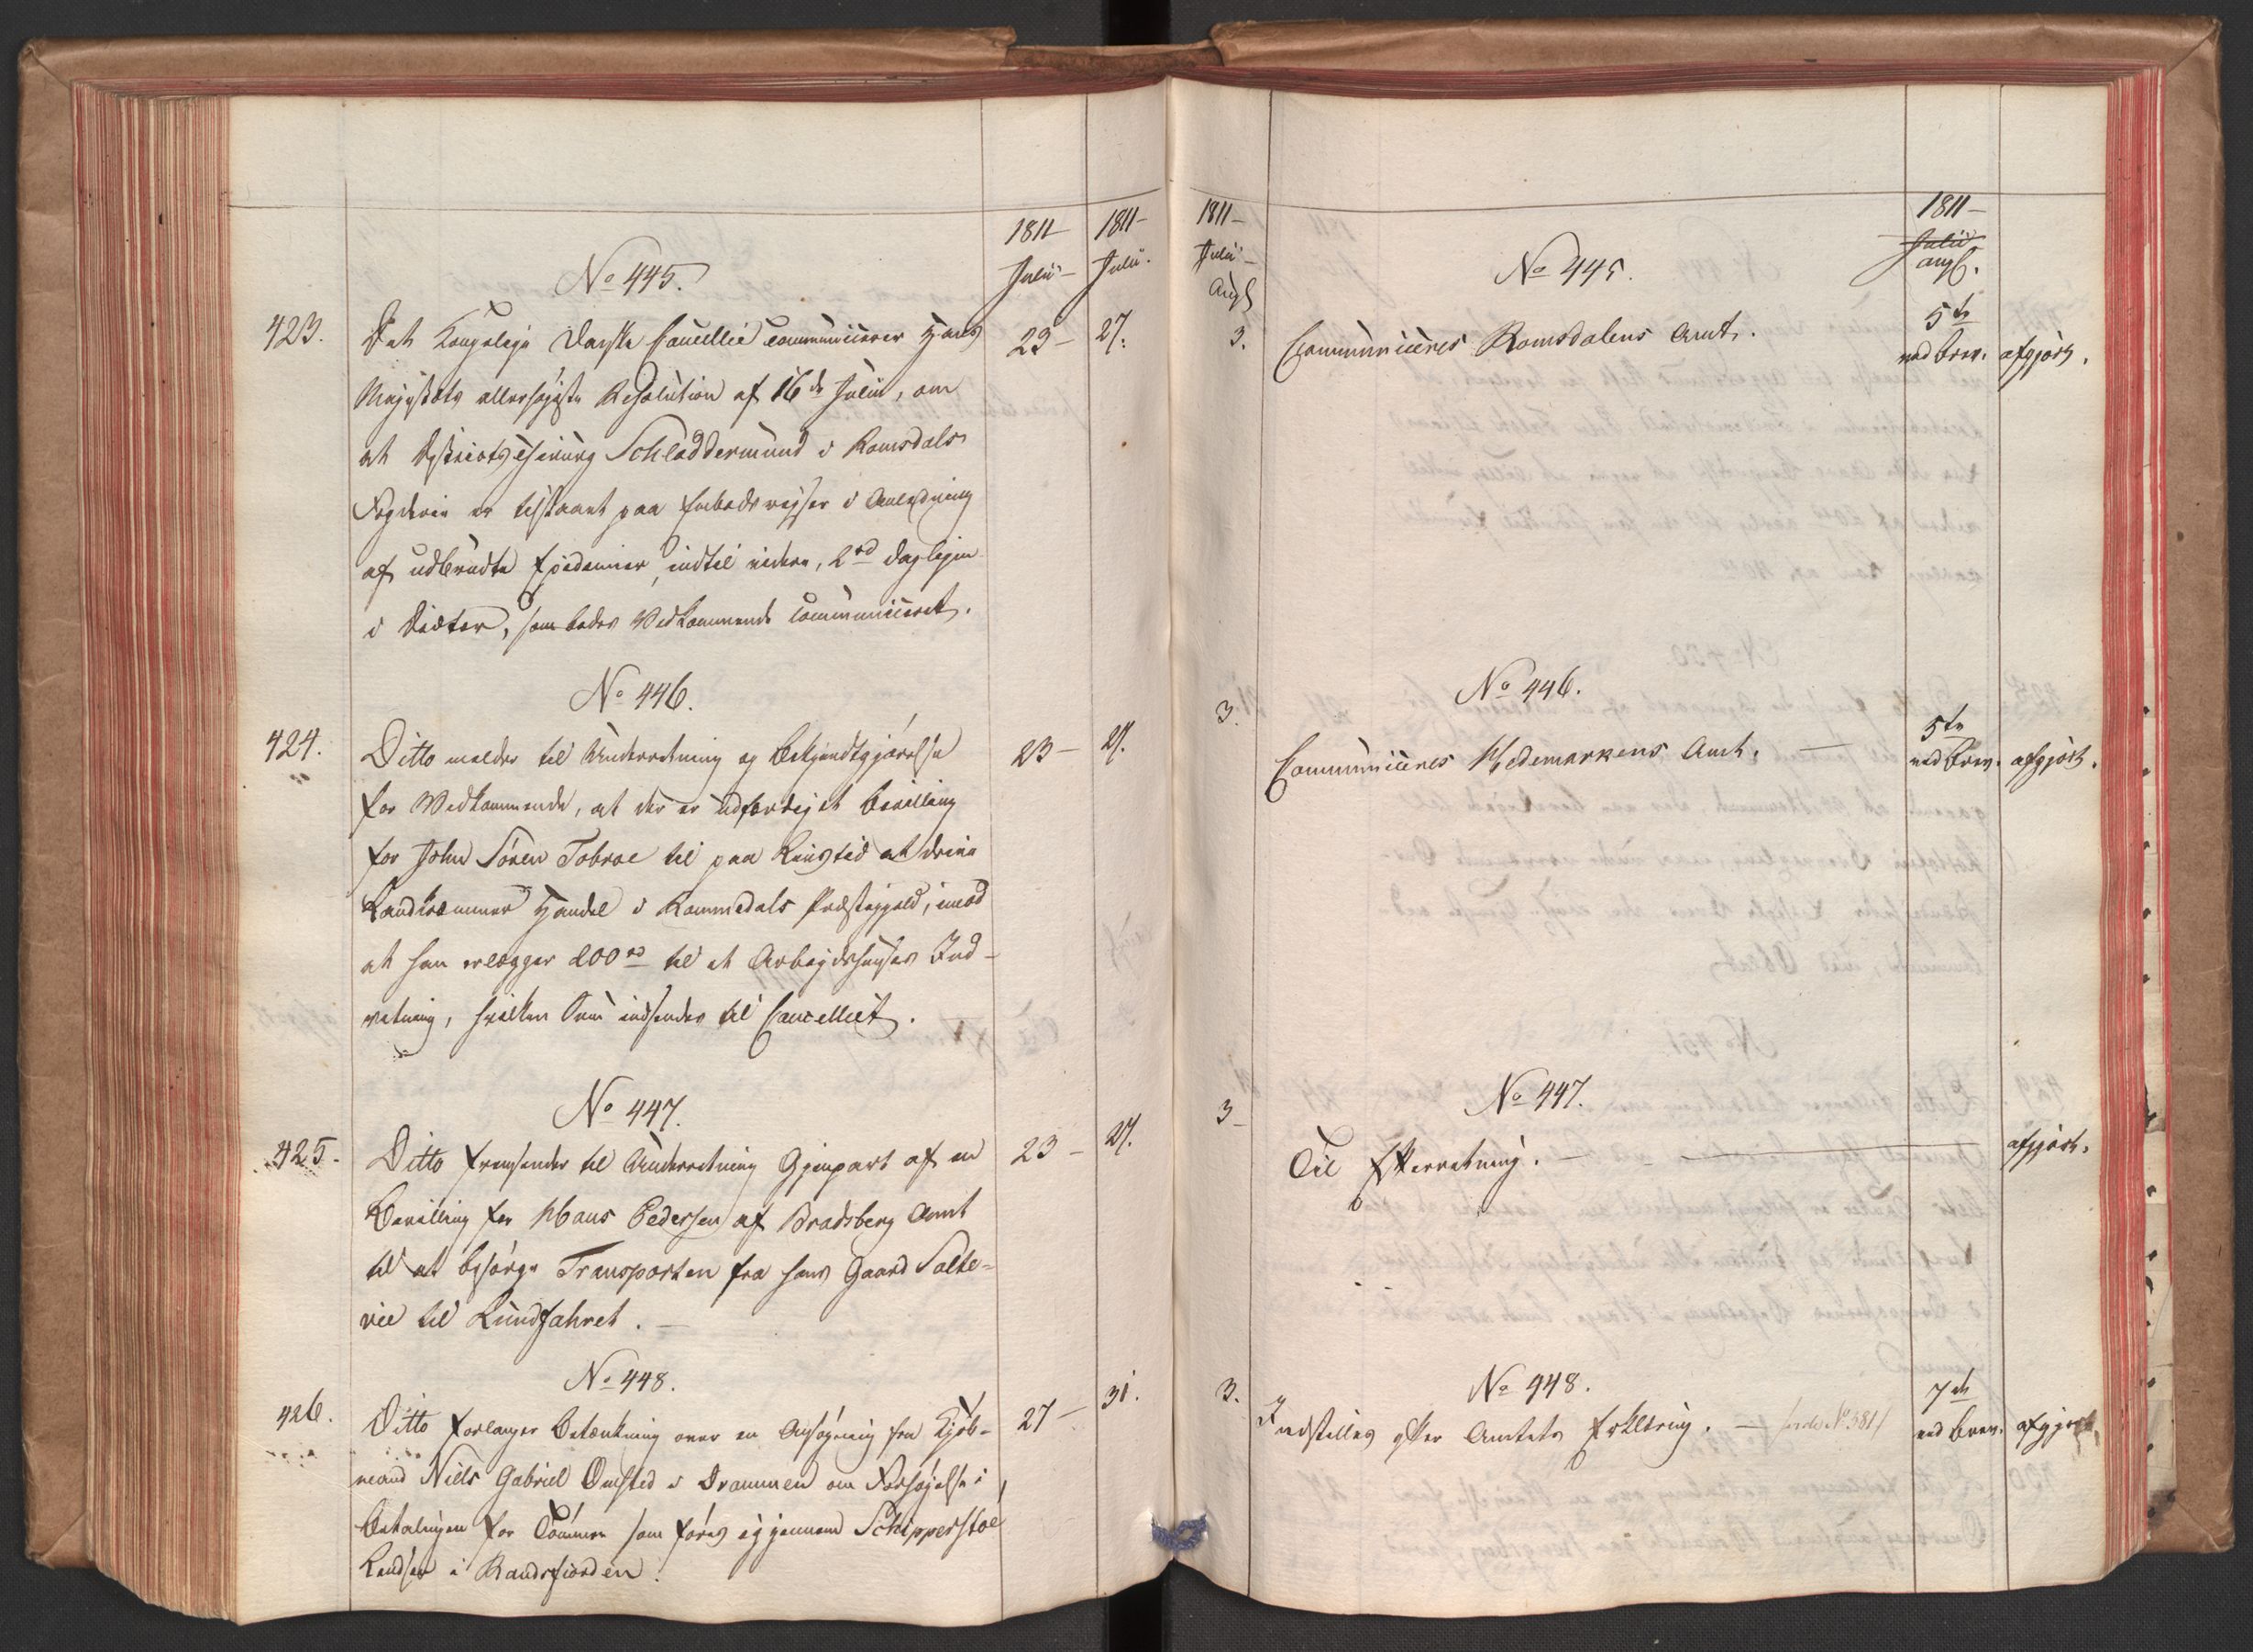 1811
Julii
1811
Julii.
No 445.
423.
Det Kongelige Danske Cancellie communicerer Hans
23
27.
Majestæts allerhøjeste Resolution af 16de Julii, om
at Districtschirurg Schladdermund i Romsdals
Fogderie er tilstaaet paa Embedsrejser i Anledning
af udbrudte Epidemier, indtil videre, 2rd daglig
i Diæter, som bedes Vedkommende communiceret.
No 446.
424.
Ditto melder til Underretning og Bekjendtgjørelse
23
27.
for Vedkommende, at der er udfærdiget Bevilling
for John Sören Tobroe til paa Livstid at drive
Landkræmmer Handel i Rommedals Præstegjeld, imod
at han erlægger 200rd til et Arbejdshuuses Ind-
retning, hvilken Sum indsendes til Cancelliet.
No 447.
425.
Ditto fremsender til Underretning Gjenpart af en
23
27.
Bevilling for Hans Pedersen af Bradsberg Amt
til at besørge Transporten fra hans Gaard Salte-
vie til Lundfahret.
No 448.
426.
Ditto forlanger Betænkning over en Ansøgning fra Kjøb-
27
31.
mand Niels Gabriel Omsted i Drammen om Forhøjelse i
Betalingen for Tömmer som føres igjennem Schipperstoe
Lendser i Randsfiorden.
1811
Julii
Augt
1811
Julii
augt.
No 445.
3.
Communiceres Romsdalens Amt.
5te
ved Brev.
afgjort.
No 446.
3.
Communiceres Hedemarkens Amt.
5te
ved Brev.
afgjort.
No 447.
3
Til Efterretning.
afgjort.
No 448.
3.
Indstilles efter Amtets Erklæring. (vide No 581)
7de
ved Brev.
afgjort.